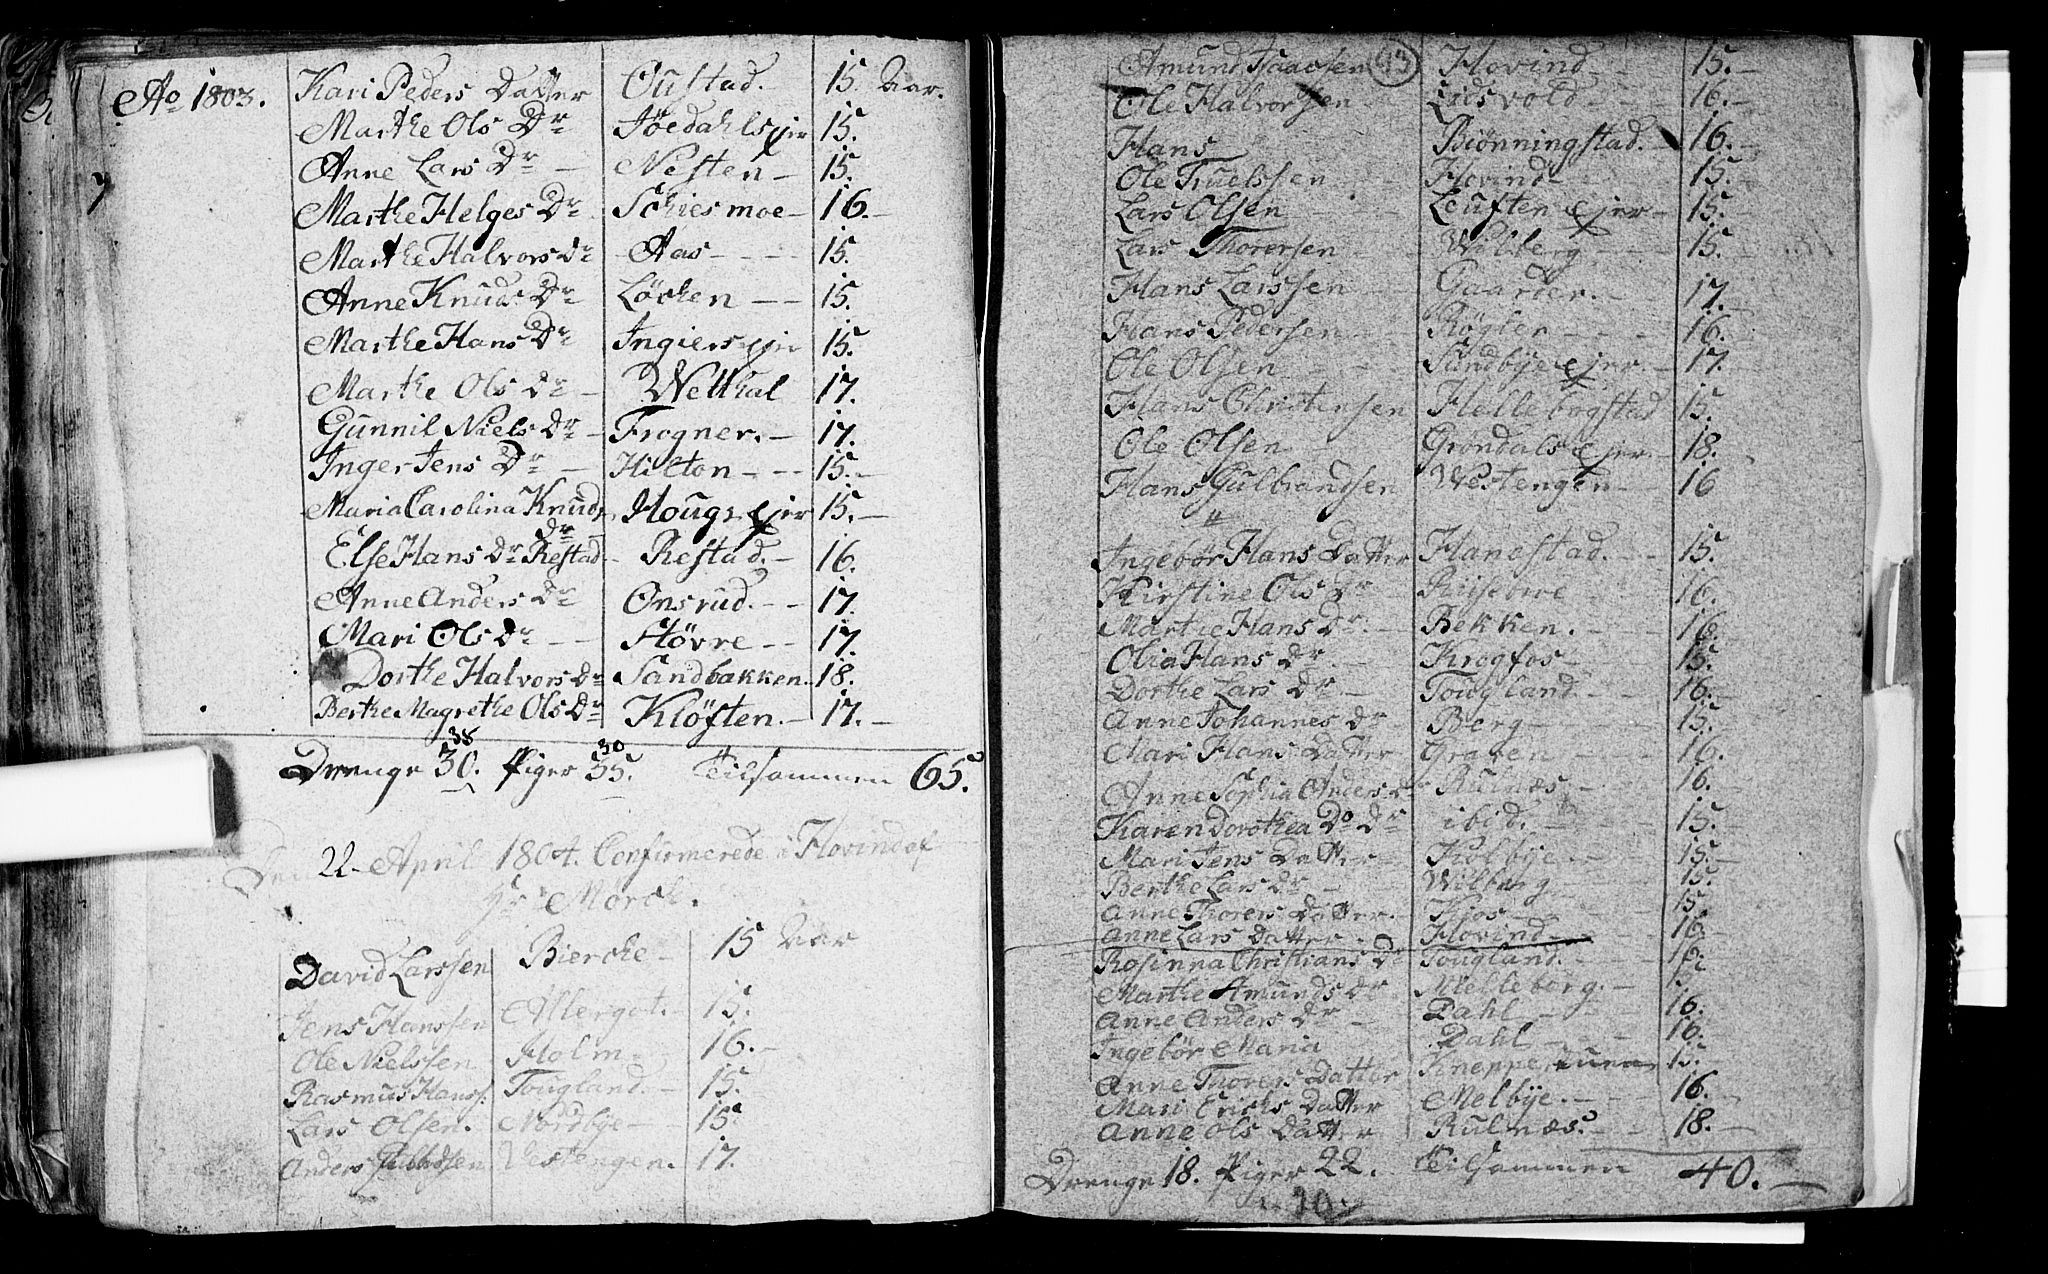 Ao 1803. Kari Peders Datter Oustad. 15. Aar.
Marthe Ols Dr Jöedahls ejer 15.
Anne Lars Dr — Nesten — 15.
Marthe Helges Dr Schiesmoe — 16. —
Marthe Halvors Dr Aas — 15.
Anne Knuds Dr Löcken — — 15.
Marthe Hans Dr Ingiers ejer 15.
Marthe Ols Dr — Welthal 17.
Gunnil Niels Dr — Frogner. — 17.
Inger Jens Dr — Hilton — — 15. —
Maria Carolina Knuds Dr Hougs ejer 15. —
Else Hans Dr Restad — Restad. — 16.
Anne Anders Dr Onsrud. — 17.
Mari Ols Dr — Hövre — 17.
Dorthe Halvors Dr Sandbakken 18.
Berthe Magrethe Ols Dr Klöften. — 17. —
38 30
Drenge 30. Piger 35. Tilsammen 65.
Den 22 April 1804. Confirmerede i Hovind af
Hr Mörck.
David Larssen Biercke — 15 Aar
Jens Hanssen Allergot. — 15.
Ole Nielssen Holm — 16. —
Rasmus Hanss. Tougland. — 15.
Lars Olsen. Nordbye — 15.
Anders Gulbrdsen Vestengen. 17.
93
Amund Isaacsen Hovind — 15. —
Ole Halvorssen Eidsvold — 16. —
Hans Biönningstad. — 16. —
Ole Truelssen Hovind — 15. —
Lars Olsen Leuften ejer — 15. —
Lars Thorersen Wilberg — 15. —
Hans Larssen Gaarder. — 17. —
Hans Pedersen Rögler — 16.
Ole Olsen Sundbye ejer. — 17. —
Hans Christensen Hellebogstad 15.
Ole Olsen Gröndals ejer. — 18.
Hans Gulbrandsen Westengen — 16
"
Ingebör Hans Datter Hanestad. — 15.
Kirstine Ols Dr Riisebere — 16.
Marthe Hans Dr Bekken. — 16.
Olia Hans Dr — Krogfos — 15.
Dorthe Lars Dr — Tougland — 16. —
Anne Johannes Dr Berg — 15.
Mari Hans Datter Graven — 16.
Anne Sophia Anders Dr Rulnæs. — 16.
Karen Dorothea Do Dr ibid. — 15. —
Mari Jens Datter — Kolbye. — 15. —
Berthe Lars Dr — Wilberg — 15.
Anne Thorers Datter. Kios — 15.
Anne Lars Datter. Hovind — 16.
Rosinna Christians Dr Tougland. — 16.
Marthe Amunds Dr Melleborg. —
Anne Anders Dr — Dahl — 16.
Ingebör Maria Dahl — 16.
Anne Thorers Datter Knepperuen 15.
Mari Erichs Datter Melbye. — 16.
Anne Ols Datter Rulnæs. — 18. —
Drenge 18. Piger 22. Tilsammen 40. —